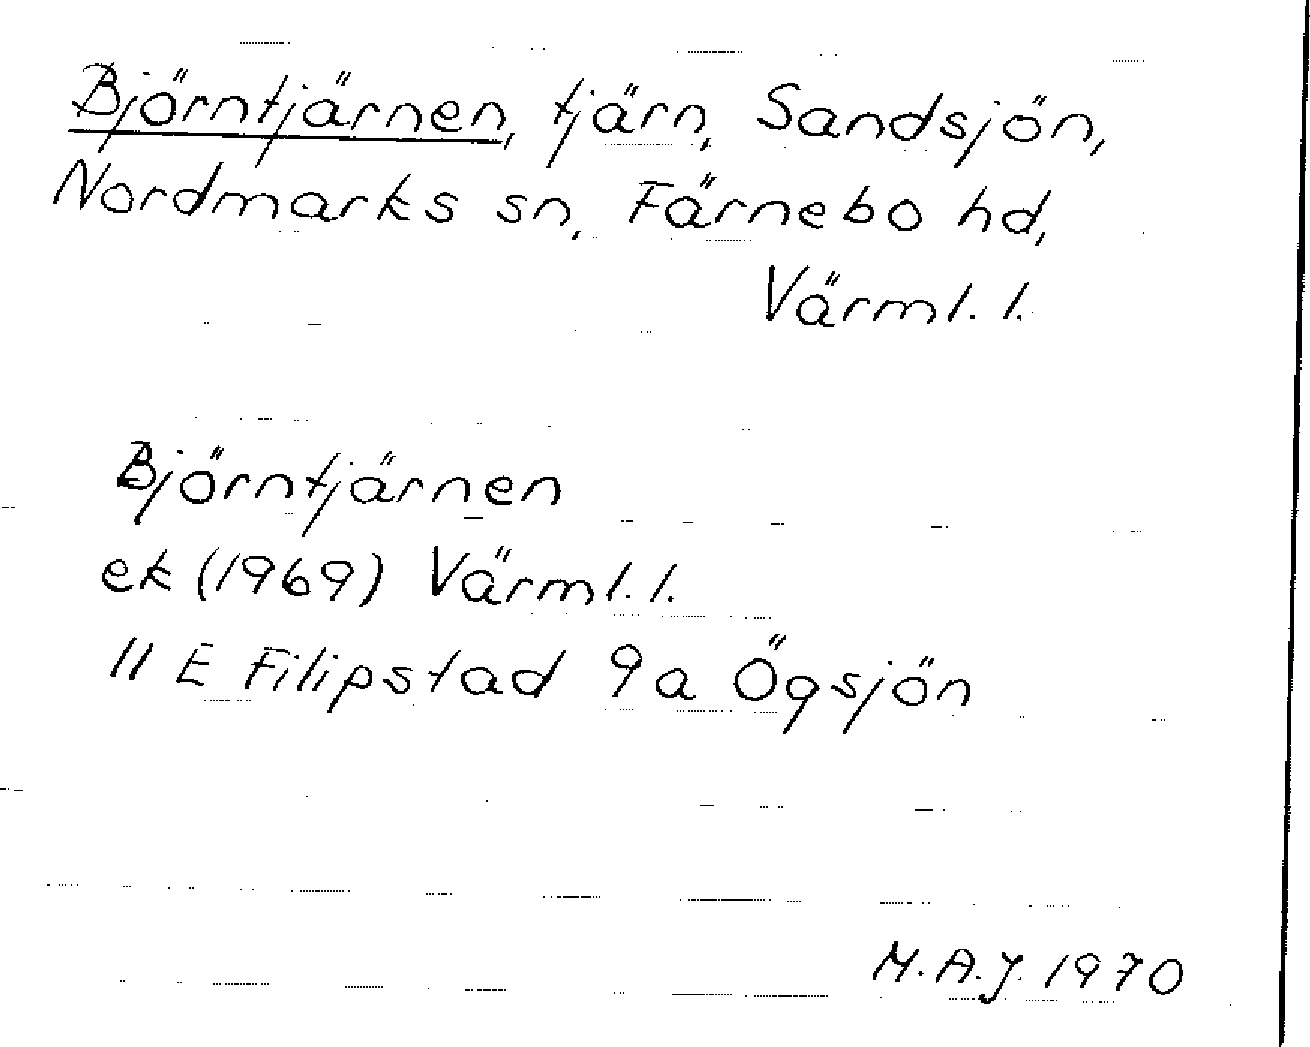 Björntjärnen, tjärn, Sandsjön,
Nordmarks sn, Färnebo hd,
Värml. l.
Björntjärnen
ek (1969) Värml. l.
11 E Filipstad 9a Ögsjön
M.A.J. 1970